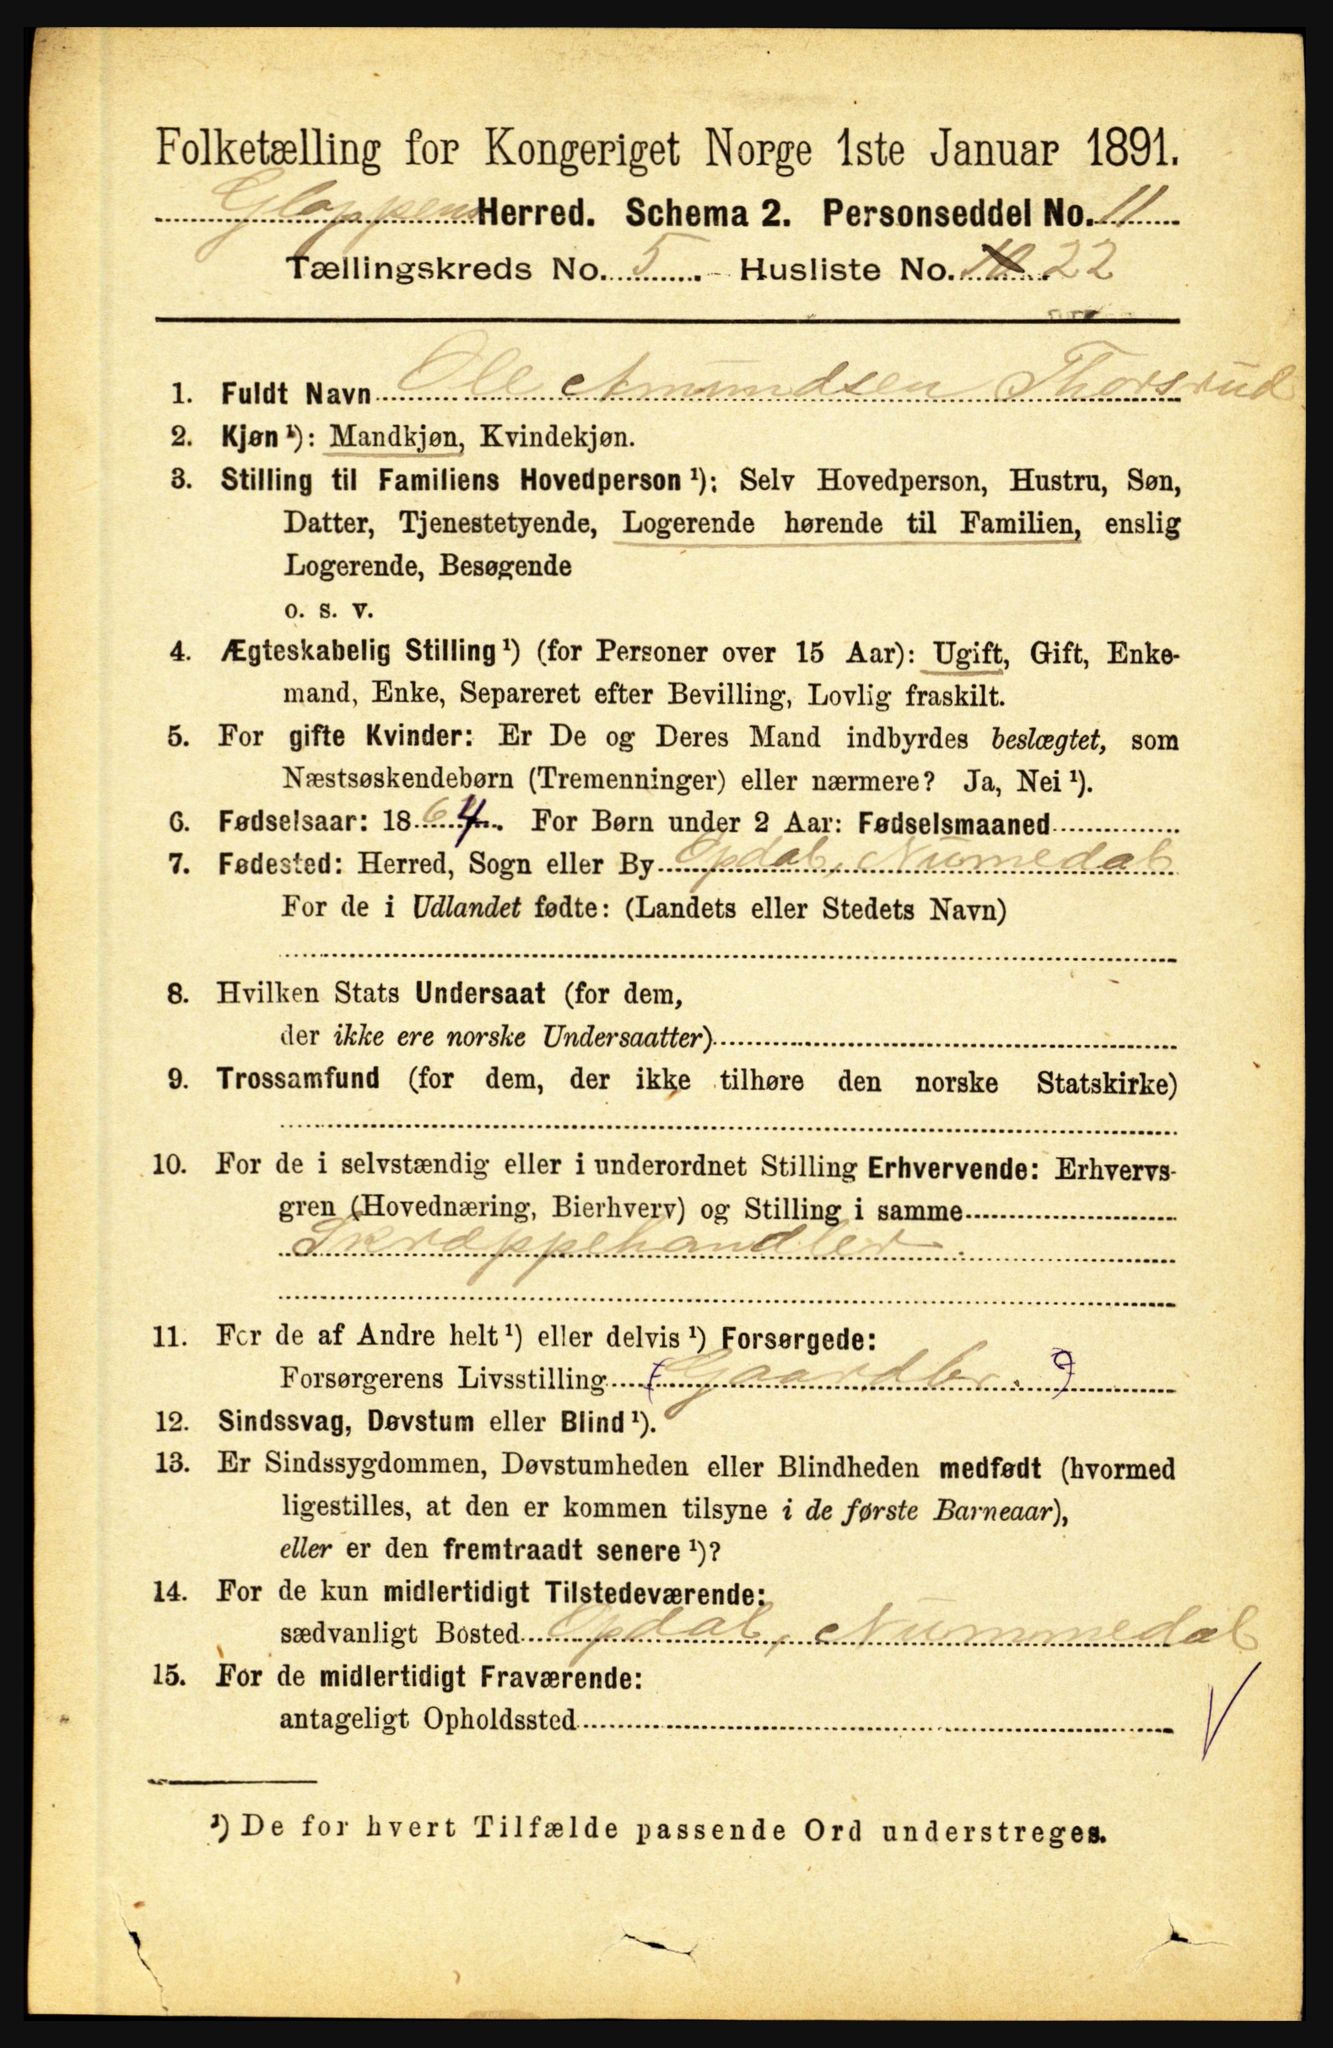 Folketælling for Kongeriget Norge 1ste Januar 1891.
Gloppens Herred. Schema 2. Personseddel No. 11
Tællingskreds No. 5. - Husliste No. 10 22
1. Fuldt Navn Ole Amundsen Thorsrud
2. Kjøn¹): Mandkjøn, Kvindekjøn.
3. Stilling til Familiens Hovedperson¹): Selv Hovedperson, Hustru, Søn,
Datter, Tjenestetyende, Logerende hørende til Familien, enslig
Logerende, Besøgende
o. s. v.
4. Ægteskabelig Stilling¹) (for Personer over 15 Aar): Ugift, Gift, Enke-
mand, Enke, Separeret efter Bevilling, Lovlig fraskilt.
5. For gifte Kvinder: Er De og Deres Mand indbyrdes beslægtet, som
Næstsøskendebørn (Tremenninger) eller nærmere? Ja, Nei¹).
6. Fødselsaar: 1864. For Børn under 2 Aar: Fødselsmaaned
7. Fødested: Herred, Sogn eller By Opdal, Numedal
For de i Udlandet fødte: (Landets eller Stedets Navn)
8. Hvilken Stats Undersaat (for dem,
der ikke ere norske Undersaatter)
9. Trossamfund (for dem, der ikke tilhøre den norske Statskirke)
10. For de i selvstændig eller i underordnet Stilling Erhvervende: Erhvervs-
gren (Hovednæring, Bierhverv) og Stilling i samme
Skræppehandler.
11. For de af Andre helt¹) eller delvis¹) Forsørgede:
Forsørgerens Livsstilling (Gaardbr. ?
12. Sindssvag, Døvstum eller Blind¹).
13. Er Sindssygdommen, Døvstumheden eller Blindheden medfødt (hvormed
ligestilles, at den er kommen tilsyne i de første Barneaar),
eller er den fremtraadt senere¹)?
14. For de kun midlertidigt Tilstedeværende:
sædvanligt Bosted Opdal, Nummedal
15. For de midlertidigt Fraværende:
antageligt Opholdssted
¹) De for hvert Tilfælde passende Ord understreges.